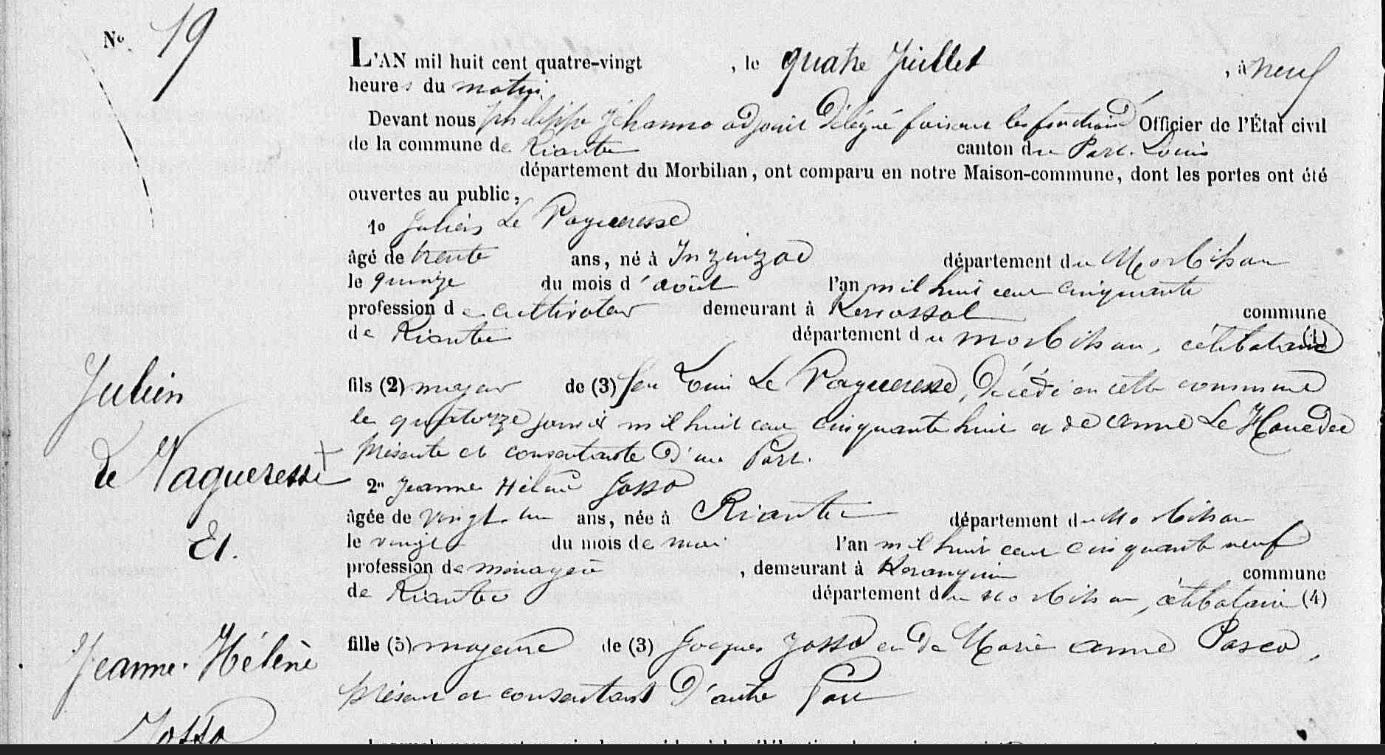 N° 19
L'AN mil huit cent quatre-vingt , le quatre Juillet , à neuf
heures du matin
Devant nous philippe Jéhanno adjoint délégué faisant les fonctions Officier de l'État civil
de la commune de Riantec canton du Port-Louis
département du Morbihan, ont comparu en notre Maison-commune, dont les portes ont été
ouvertes au public,
1° Julien Le Vagueresse
âgé de trente ans, né à Inzinzac département du Morbihan
le quinze du mois d'août l'an mil huit cent cinquante
profession de cultivateur demeurant à commune
de Riantec département du morbihan, célibataire (1)
fils (2) majeur de (3) feu Louis Le Vagueresse, décédé en cette commune
le quatorze mil huit cent cinquante huit et de anne Le Houedec
présente et consentante d'une Part.
2° Jeanne Hélène Josso
âgée de vingt un ans, née à Riantec département du Morbihan
le vingt du mois de mai l'an mil huit cent cinquante neuf
profession de ménagère , demeurant à commune
de Riantec département du Morbihan, célibataire (4)
fille (5) majeure de (3) Jacques Josso et de Marie anne Pasco,
présent et consentant d'autre Part
Julien
Le Vagueresse
Et.
Jeanne-Hélène
Josso